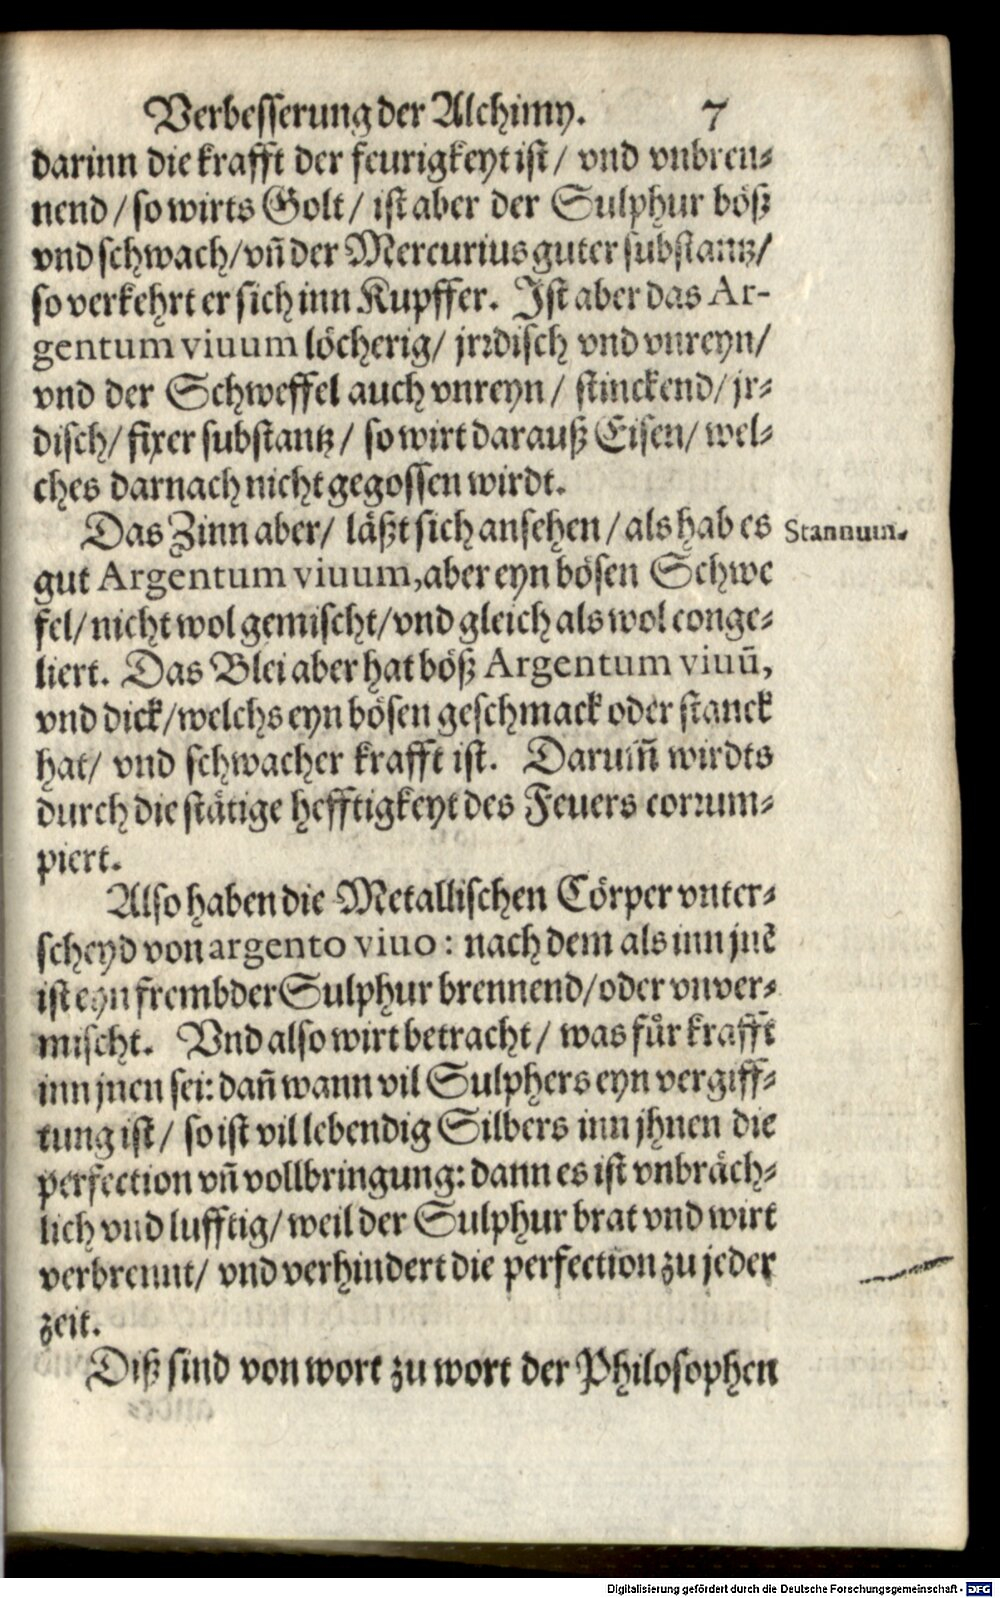 Verbesserung der Alchimy. 7
darinn die krafft der feurigkeyt ist / vnd vnbren⸗
nend / so wirts Golt / ist aber der Sulphur böß
vnd schwach / vñ der Mercurius guter substantz /
so verkehrt er sich inn Kupffer. Ist aber das Ar-
gentum viuum löcherig / jrꝛdisch vnd vnreyn /
vnd der Schweffel auch vnreyn / stinckend / jr⸗
disch / fixer substantz / so wirt darauß Eisen / wel⸗
ches darnach nicht gegossen wirdt.
Das Zinn aber / läßt sich ansehen / als hab es Stannum.
gut Argentum viuum, aber eyn bösen Schwe
fel / nicht wol gemischt / vnd gleich als wol conge⸗
liert. Das Blei aber hat böß Argentum viuū,
vnd dick / welchs eyn bösen geschmack oder stanck
hat / vnd schwacher krafft ist. Darum̃ wirdts
durch die stätige hefftigkeyt des Feuers corrum⸗
piert.
Also haben die Metallischen Cörper vnter⸗
scheyd von argento viuo : nach dem als inn jnē
ist eyn frembder Sulphur brennend / oder vnver⸗
mischt. Vnd also wirt betracht / was fůr krafft
inn jnen sei: dañ wann vil Sulphers eyn vergiff⸗
tung ist / so ist vil lebendig Silbers inn jhnen die
perfection vñ vollbringung: dann es ist vnbräch⸗
lich vnd lufftig / weil der Sulphur brat vnd wirt
verbrennt / vnd verhindert die perfection zu jeder
zeit.
Diß sind von wort zu wort der Philosophen
Digitalisierung gefördert durch die Deutsche Forschungsgemeinschaft - DFG